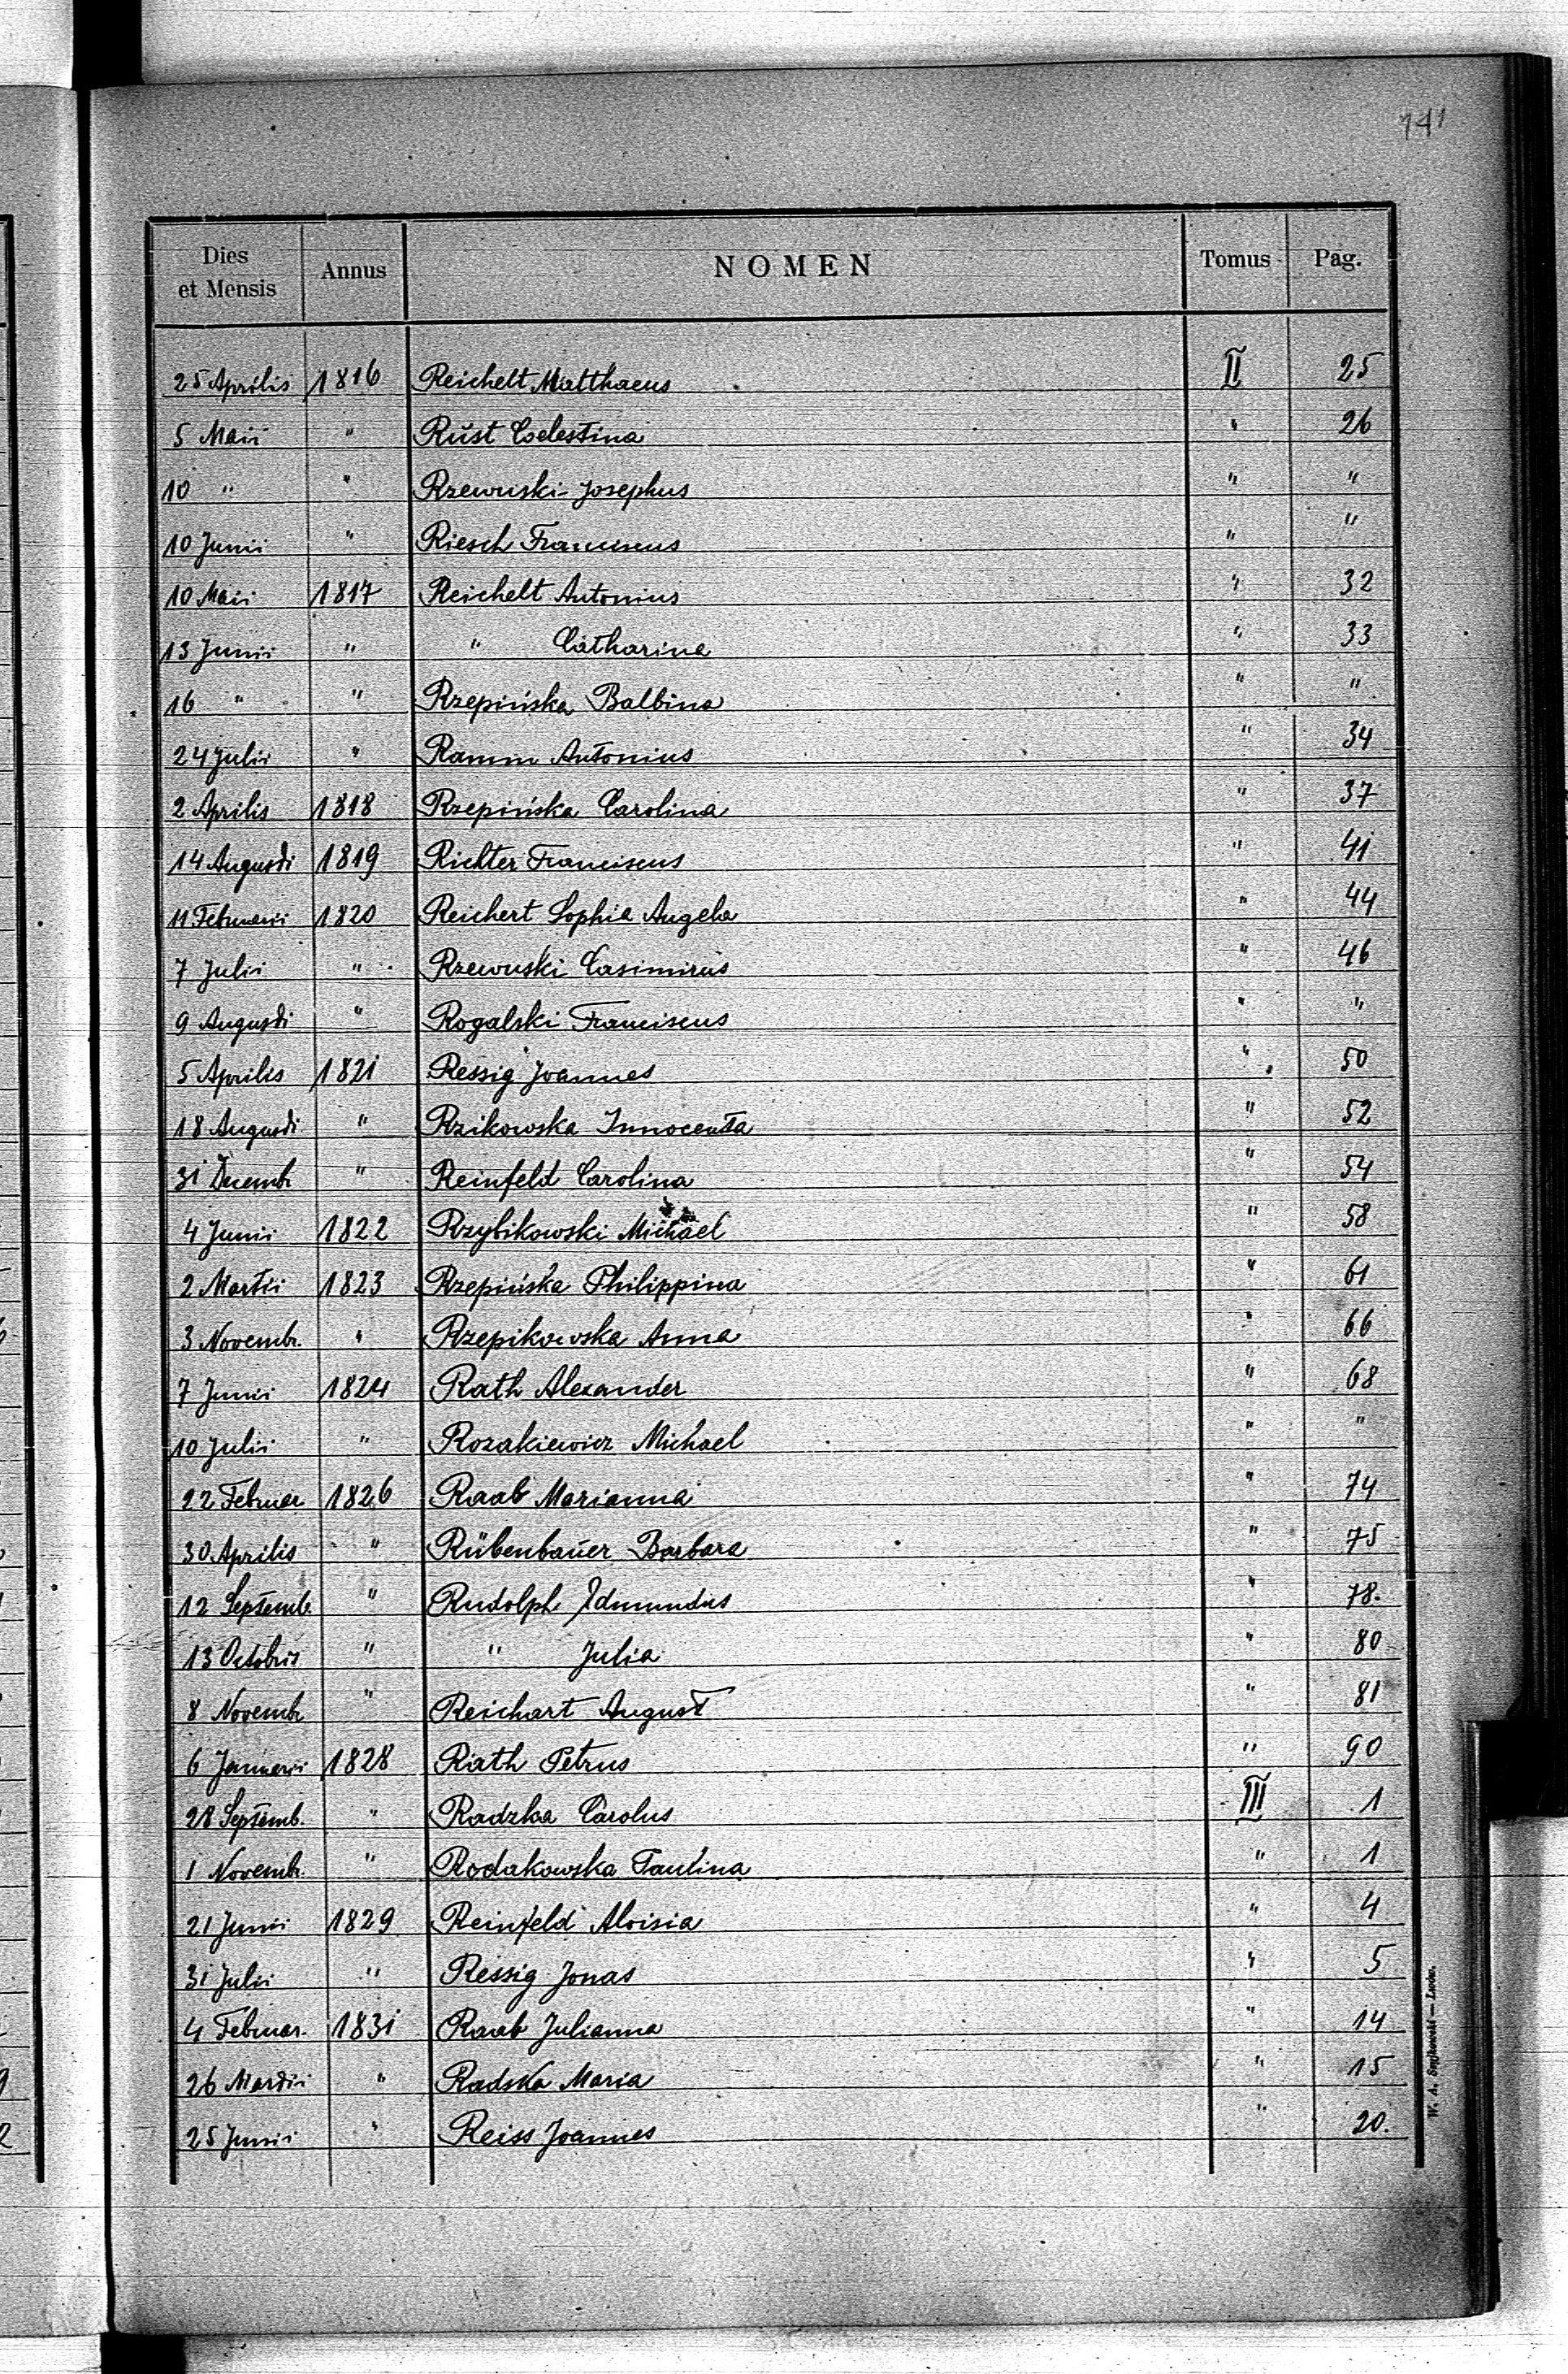 741
Dies et Mensis Annus NOMEN Tomus Pag.
25 Aprilis 1816 Reichelt Matthaeus II 25
5 Maii " Rŭst Coelestina " 26
10 " " Rzewuski Josephus " "
10 Junii " Riesch Franciscus " "
10 Maii 1817 Reichelt Antonius " 32
13 Junii " " Catharina " 33
16 " " Rzepińska Balbina " "
24 Julii " Ramm Antonius " 34
2 Aprilis 1818 Rzepińska Carolina " 37
14 Augusti 1819 Richter Franciscus " 41
11 Februarii 1820 Reichert Sophia Angela " 44
7 Julii " Rzewuski Casimirus " 46
9 Augusti " Rogalski Franciscus " "
5 Aprilis 1821 Ressig Joannes " 50
18 Augusti " Rzikowska Innocenta " 52
31 Decemb. " Reinfeld Carolina " 54
4 Junii 1822 Rzybikowski Michael " 58
2 Martii 1823 Rzepińska Philippina " 61
3 Novembr. " Rzepikowska Anna " 66
7 Junii 1824 Rath Alexander " 68
10 Julii " Rozakiewicz Michael " "
22 Februar 1826 Raab Marianna " 74
30 Aprilis " Rübenbaŭer Barbara " 75
12 Septemb. " Rudolph Edmundus " 78.
13 Octobris " " Julia " 80
8 Novembr " Reichart August " 81
6 Januarii 1828 Rath Petrus " 90
28 Septemb. " Radzka Carolus III 1
1 Novembr. " Rodakowska Paulina " 1
21 Junii 1829 Reinfeld Aloisia " 4
31 Julii " Ressig Jonas " 5
4 Februar. 1831 Raab Julianna " 14
26 Martii " Radska Maria " 15
25 Junii " Reiss Joannes " 20.